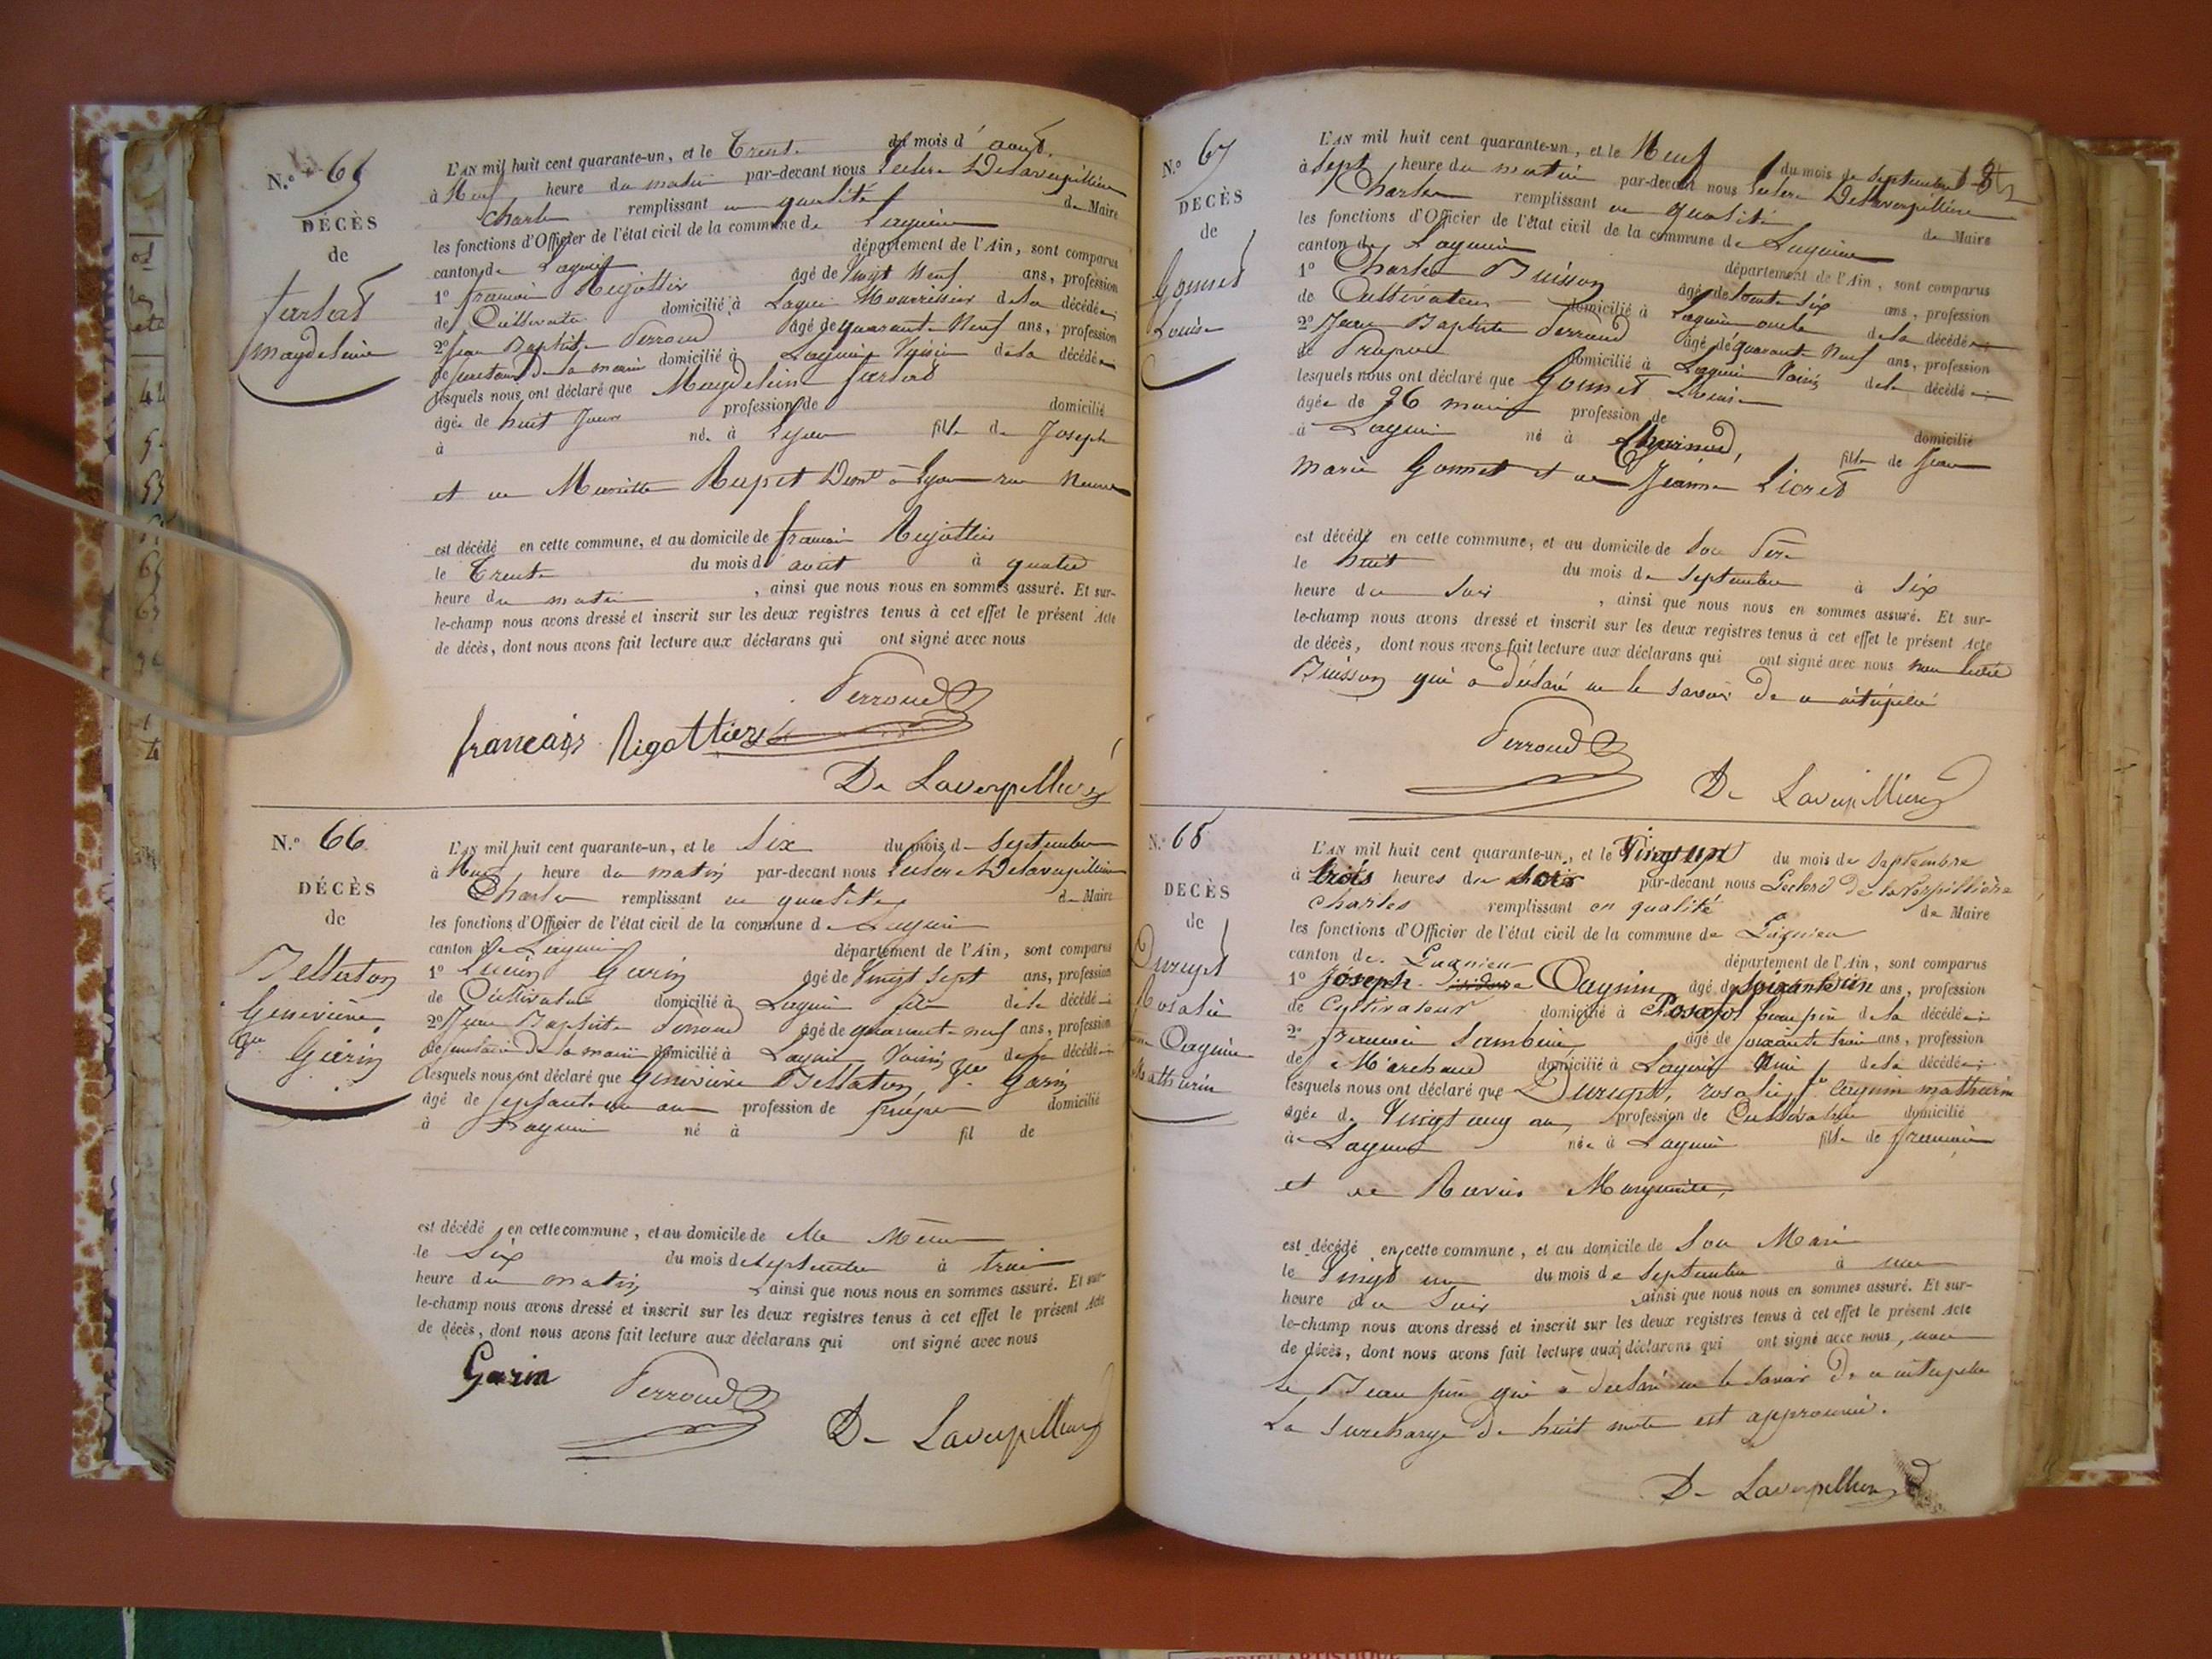 N.° 65
DÉCÈS
de
farlat
Magdeleine
L'AN mil huit cent quarante-un, et le Trente du mois d'août
à Neuf heure du matin par-devant nous Leclerc Delaverpillière
Charles remplissant en qualité de Maire
les fonctions d'Officier de l'état civil de la commune de Lagnieu
canton de Lagnieu département de l'Ain, sont comparus
1° françois Rigottier âgé de Vingt Neuf ans, profession
de Cultivateur domicilié à Lagnieu Nourrissier de la décédée
2° Jean Baptiste Perroud âgé de quarante Neuf ans, profession
de secretaire de la mairie domicilié à Lagnieu Voisin de la décédée
lesquels nous ont déclaré que Magdeleine farlat
âgée de huit Jours profession de domicilié
à née à Lyon fille de Joseph
et de Mariette Rupet Demt à Lyon rue Neuve
est décédé en cette commune, et au domicile de françois Rigottier
le Trente du mois d'août à quatre
heure du matin , ainsi que nous nous en sommes assuré. Et sur-
le-champ nous avons dressé et inscrit sur les deux registres tenus à cet effet le présent Acte
de décès, dont nous avons fait lecture aux déclarans qui ont signé avec nous
Perroud
francois Rigottier
De Laverpilliere
N.° 66
DÉCÈS
de
Bellaton
Geneviève
Ve Garin
L'AN mil huit cent quarante-un, et le Six du mois de Septembre
à Neuf heure du matin par-devant nous Leclerc Delaverpillière
Charles remplissant en qualité de Maire
les fonctions d'Officier de l'état civil de la commune de Lagnieu
canton de Lagnieu département de l'Ain, sont comparus
1° Garin âgé de Vingt Sept ans, profession
de Cultivateur domicilié à Lagnieu fils de la décédée
2° Jean Baptiste Perroud âgé de quarante-neuf ans, profession
de secretaire de la mairie domicilié à Lagnieu Voisin de la décédée
lesquels nous ont déclaré que Geneviève Bellaton Ve Garin
âgé de ans profession de domicilié
à Lagnieu né à fil de
est décédé en cette commune, et au domicile de elle Même
le Six du mois de Septembre à trois
heure du matin ainsi que nous nous en sommes assuré. Et sur-
le-champ nous avons dressé et inscrit sur les deux registres tenus à cet effet le présent Acte
de décès, dont nous avons fait lecture aux déclarans qui ont signé avec nous
Garin Perroud
De Laverpilliere
N.° 67
DÉCÈS
de
Gonnet
Louise
L'AN mil huit cent quarante-un, et le Neuf du mois de Septembre
à Sept heure du matin par-devant nous Leclerc Delaverpillière
Charles remplissant en qualité de Maire
les fonctions d'Officier de l'état civil de la commune de Lagnieu
canton de Lagnieu département de l'Ain, sont comparus
1° Charles Buisson âgé de Six ans, profession
de Cultivateur domicilié à Lagnieu oncle de la décédée
2° Jean Baptiste Perroud âgé de quarante Neuf ans, profession
de domicilié à Lagnieu Voisin de la décédée
lesquels nous ont déclaré que Gonnet Louise
âgée de 26 mois profession de domicilié
à Lagnieu né à fille de Jean
Marie Gonnet et de Jeanne
est décédé en cette commune, et au domicile de Son Père
le huit du mois de Septembre à Six
heure du Soir , ainsi que nous nous en sommes assuré. Et sur-
le-champ nous avons dressé et inscrit sur les deux registres tenus à cet effet le présent Acte
de décès, dont nous avons fait lecture aux déclarans qui ont signé avec nous non ledit
Buisson qui a déclaré ne le savoir De ce interpellé
Perroud
De Laverpilliere
N.° 68
DECÈS
de
Durupt
Rosalie
femme Cagnin
Mathurin
L'AN mil huit cent quarante-un, et le Vingt un du mois de Septembre
à trois heures du soir par-devant nous Leclerc de laverpillière
Charles remplissant en qualité de Maire
les fonctions d'Officier de l'état civil de la commune de Lagnieu
canton de Lagnieu département de l'Ain, sont comparus
1° Joseph Cagnin âgé de soixante un ans, profession
de Cultivateur domicilié à Posafol beau père de la décédée
2° francois âgé de soixante trois ans, profession
de Marchand domicilié à Lagnieu Ami de la décédée
lesquels nous ont déclaré que Durupt, rosalie fe Cagnin mathurin
âgée de Vingt cinq ans profession de Cultivatrice domicilié
à Lagnieu née à Lagnieu fille de francois
et de Marguerite,
est décédé en cette commune, et au domicile de Son Mari
le Vingt un du mois de Septembre à une
heure du Soir ainsi que nous nous en sommes assuré. Et sur-
le-champ nous avons dressé et inscrit sur les deux registres tenus à cet effet le présent Acte
de décès, dont nous avons fait lecture aux déclarans qui ont signé avec nous, non
le Beau père qui a déclaré ne le savoir De ce interpellé
La surcharge de huit mots est approuvée.
De Laverpilliere